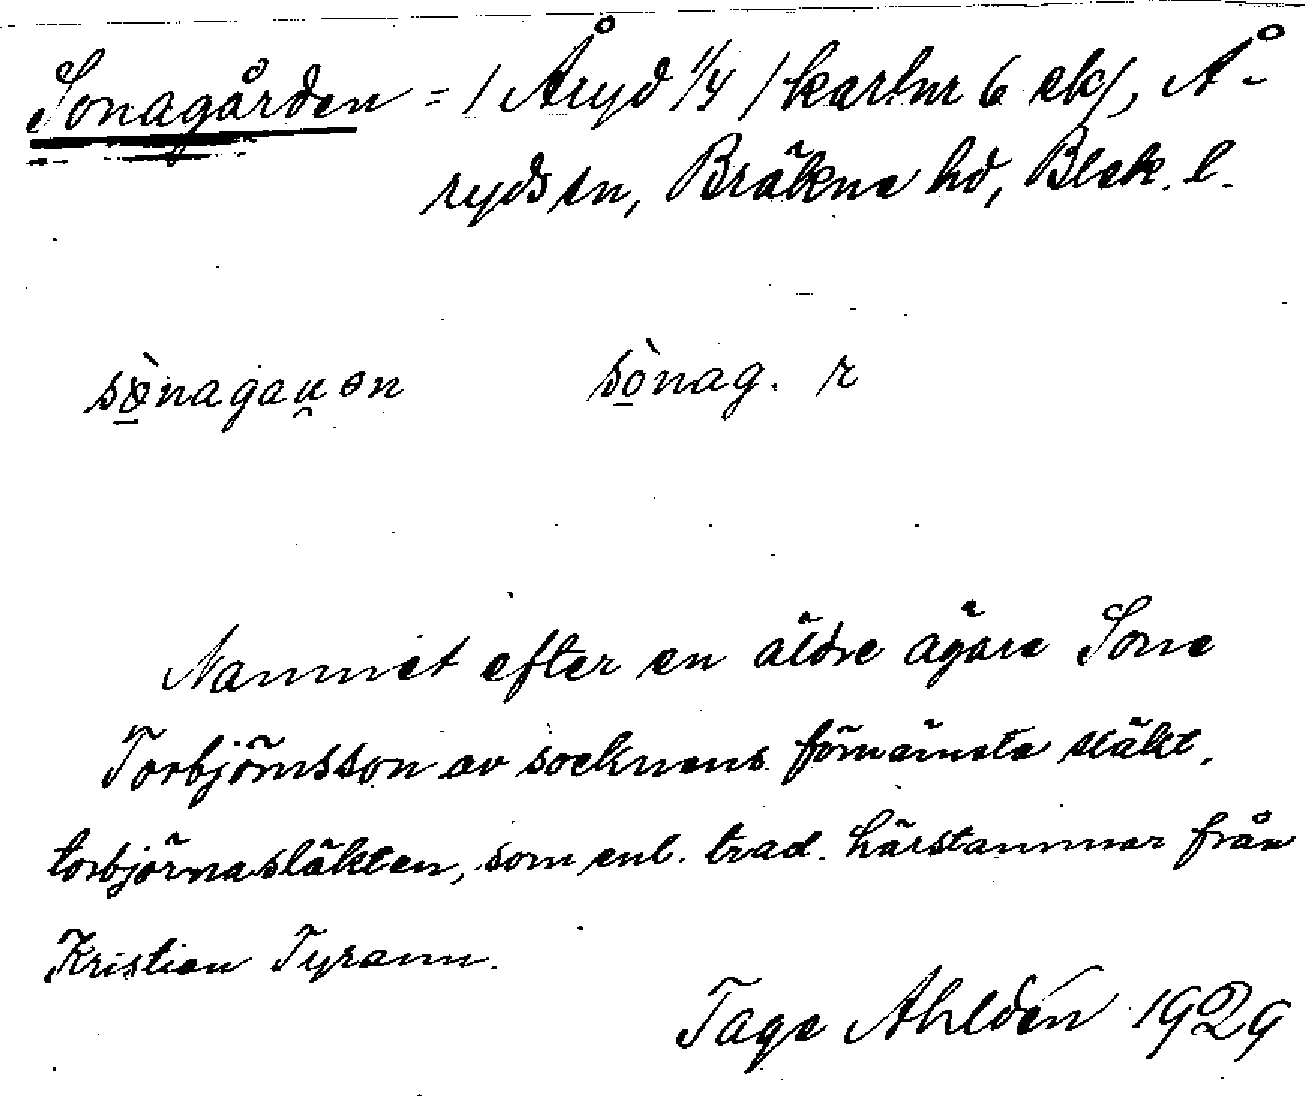 Sonagården = / Åryd 1/4 / kartnr 6 ek/, Å-
ryds sn, Bräkne hd, Blek. l.
sònagau̯ən sònag. r
Namnet efter en äldre ägare Sone
Torbjörnsson av socknens förnämsta släkt,
torbjörnasläkten, som enl. trad. härstammar från
Kristian Tyrann.
Tage Ahldén 1929